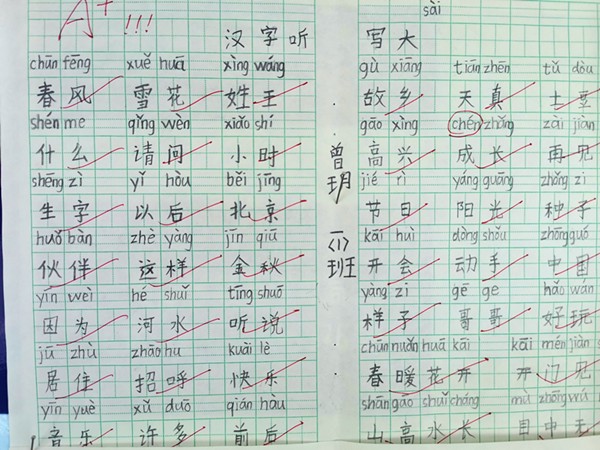 sài
A+ !!! 汉字听写大
chūn fēng xuě huā xìng wáng gù xiāng tiān zhēn tǔ dòu
春风 雪花 姓王 故乡 天真 土豆
shén me qǐng wèn xiǎo shí gāo xìng chén zhǎng zài jiàn
什么 请问 小时 高兴 成长 再见
shēng zì yǐ hòu běi jīng jié rì yáng guāng zhǒng zi
生字 以后 北京 节日 阳光 种子
huǒ bàn zhè yàng jīn qiū kāi huì dòng shǒu zhōng guó
伙伴 这样 金秋 开会 动手 中国
yīn wèi hé shuǐ tīng shuō yàng zi gē ge hǎo wán
因为 河水 听说 样子 哥哥 好玩
jū zhù zhāo hu kuài lè chūn nuǎn huā kāi kāi mén jiàn
居住 招呼 快乐 春暖花开 开门见
yīn yuè xǔ duō qián hòu shān gāo shuǐ cháng mù zhōng wú
音乐 许多 前后 山高水长 目中无
曾玥
〈1〉班